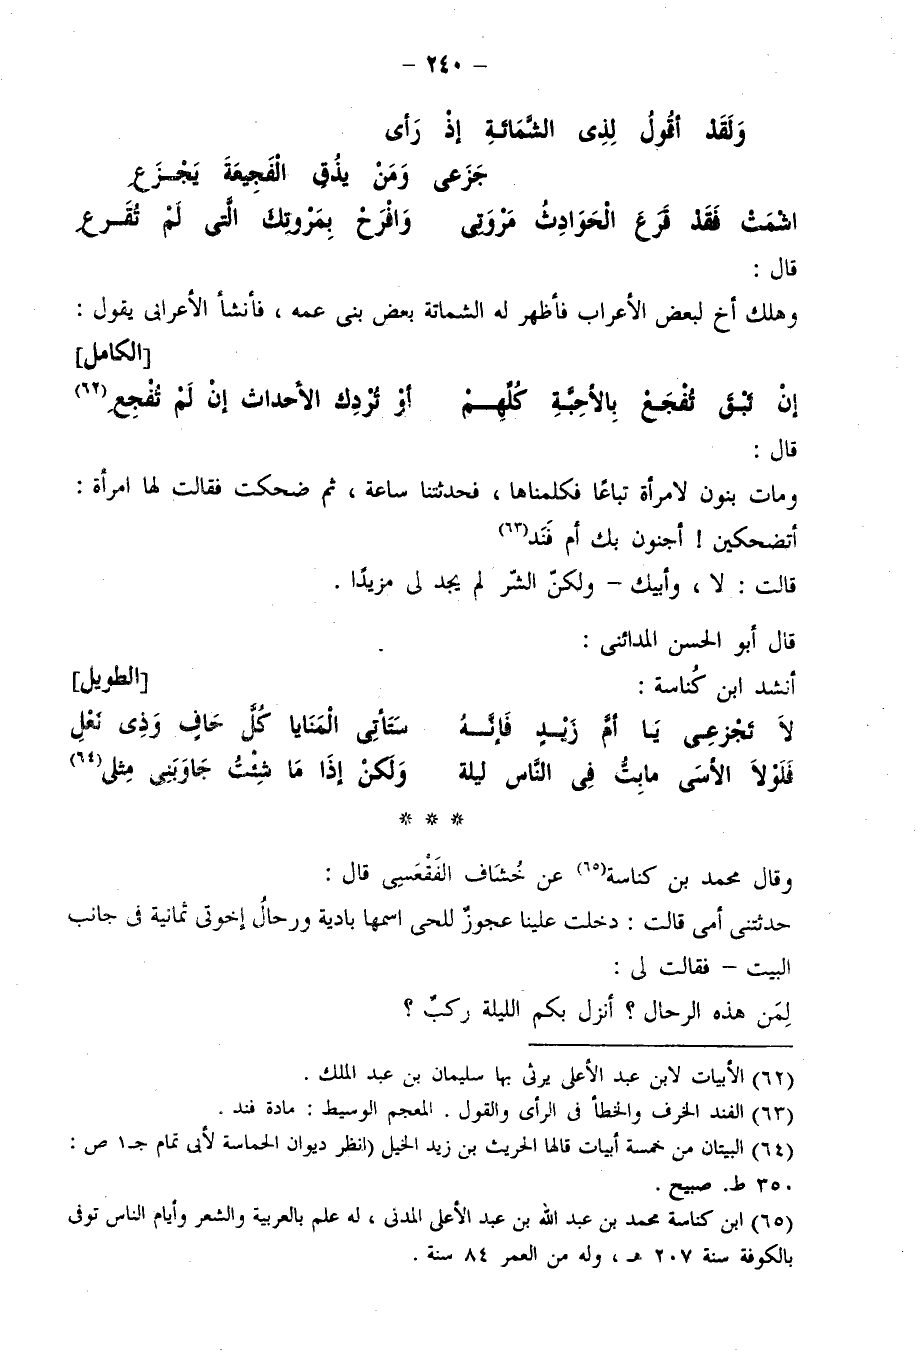 – ٢٤٠ –
وَلَقَدْ أقُولُ لِذِى الشَّمَاتَةِ إذْ رَأى
جَزَعى وَمَنْ يذُقِ الْفَجِيعَةَ يَجْــزَعِ
اشْمَتْ فَقَدْ قَرَعَ الْحَوَادِثُ مَرْوَتِى وَافْرَحْ بِمَرْوتِكَ الَّتى لَمْ تُقَــرعِ
قال :
وهلك أخ لبعض الأعراب فأظهر له الشماتة بعض بنى عمه ، فأنشأ الأعرابى يقول :
[الكامل]
إنْ تَبْقَ تُفْجَعْ بِالأحِبَّةِ كُلِّهِــمْ أوْ تُرْدِك الأحداث إنْ لَمْ تُفْجِعِ(٦٢)
قال :
ومات بنون لامرأة تباعًا فكلمناها ، فحدثتنا ساعة ، ثم ضحكت فقالت لها امرأة :
أتضحكين ! أجنون بك أم فَنَد(٦٣)
قالت : لا ، وأبيك – ولكنّ الشّر لم يجد لى مزيدًا .
قال أبو الحسن المدائنى :
أنشد ابن كُناسة :
[الطويل]
لاَ تَجْزعِـى يَـا أمَّ زَيْــدٍ فَإنَّــهُ سَتَأتِى الْمَنَايا كُلَّ حَافٍ وَذِى نَعْلِ
فَلَوْلاَ الأسَى مابِتُّ فِى النَّاس ليلة وَلَكنْ إذَا مَا شِئْتُ جَاوَبَنِى مِثلى(٦٤)
* * *
وقال محمد بن كناسة(٦٥) عن خُشَاف الفَقْعَسِى قال :
حدثتنى أمى قالت : دخلت علينا عجوزٌ للحى اسمها بادية ورحالُ إخوتى ثمانية فى جانب
البيت – فقالت لى :
لِمَن هذه الرحال ؟ أنزل بكم الليلة ركبٌ ؟
(٦٢) الأبيات لابن عبد الأعلى يرثى بها سليمان بن عبد الملك .
(٦٣) الفند الخرف والخطأ فى الرأى والقول . المعجم الوسيط : مادة فند .
(٦٤) البيتان من خمسة أبيات قالها الحريث بن زيد الخيل (انظر ديوان الحماسة لأبى تمام جـ١ ص :
٣٥٠ ط. صبيح .
(٦٥) ابن كناسة محمد بن عبد الله بن عبد الأعلى المدنى ، له علم بالعربية والشعر وأيام الناس توفى
بالكوفة سنة ٢٠٧ هـ ، وله من العمر ٨٤ سنة .